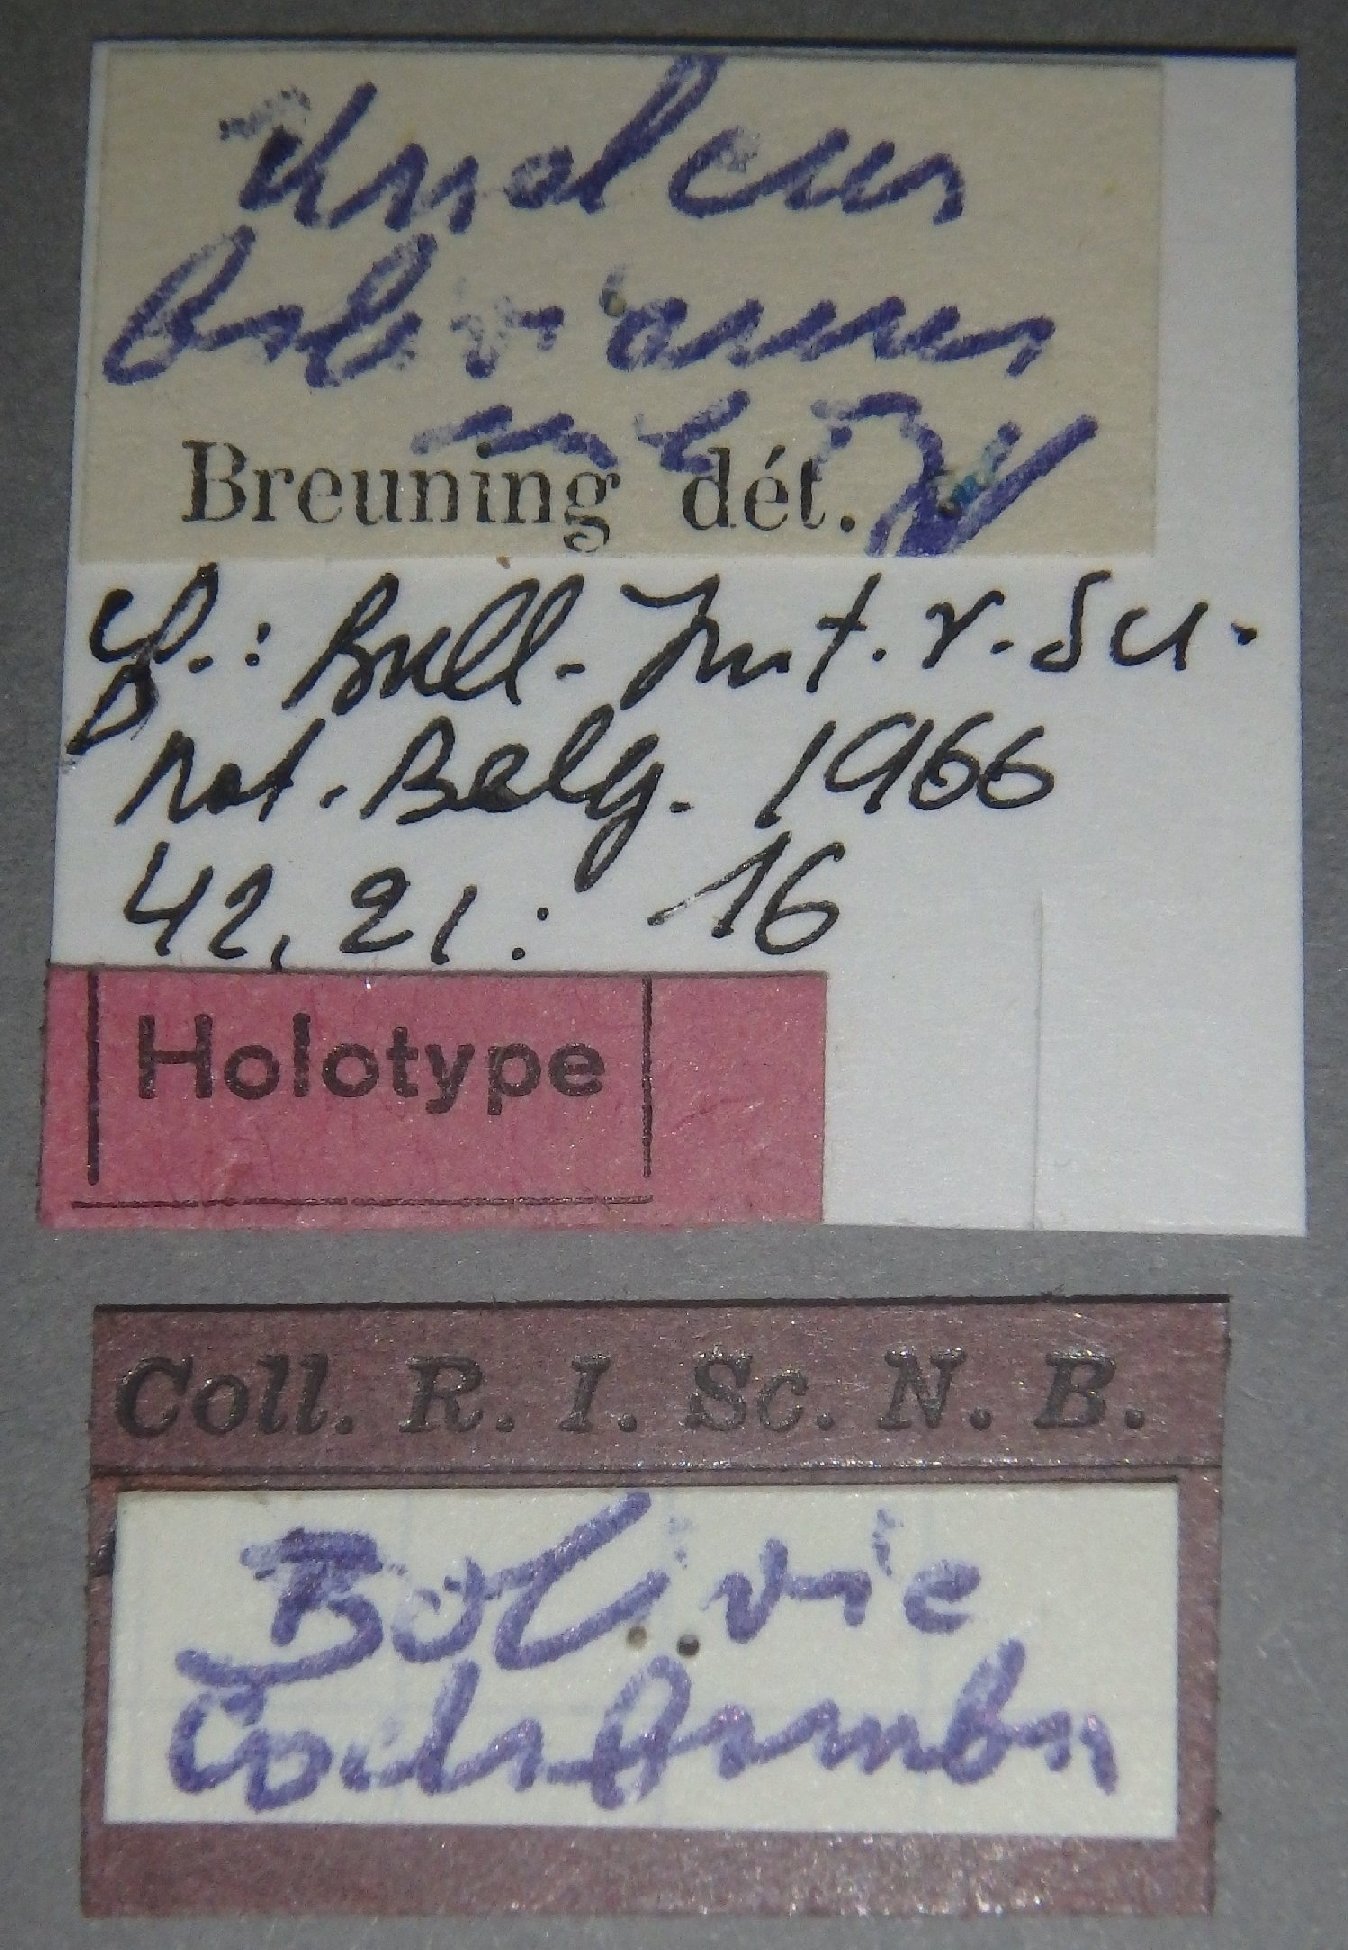 Unaleus
bolivianus
Breuning dét.
Bull. Inst. r. Sci.
nat. Belg. 1966
42, 21: 16
Holotype
Coll. R. I. Sc. N. B.
Bolivie
Cochabamba